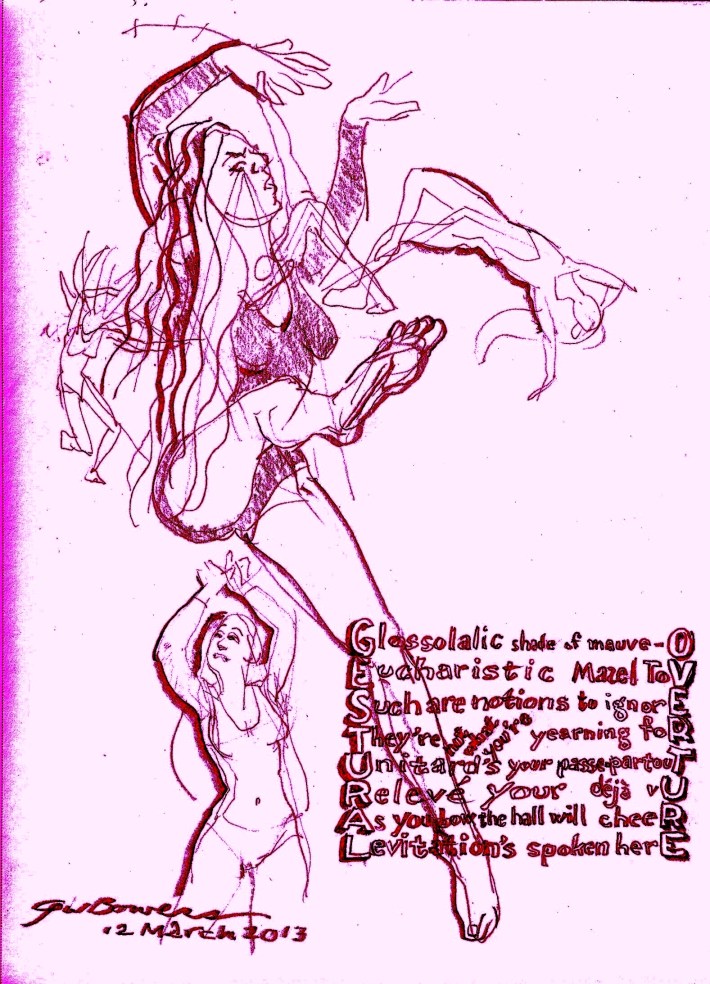 Glossolalic shade of mauve-O
Eucharistic Mazel ToV
Such are notions to ignorE
They're not what you're yearning foR
Unitard's your passe-partouT
Releve your déjà vU
As you bow the hall will cheeR
Levitation's spoken herE
12 March 2013